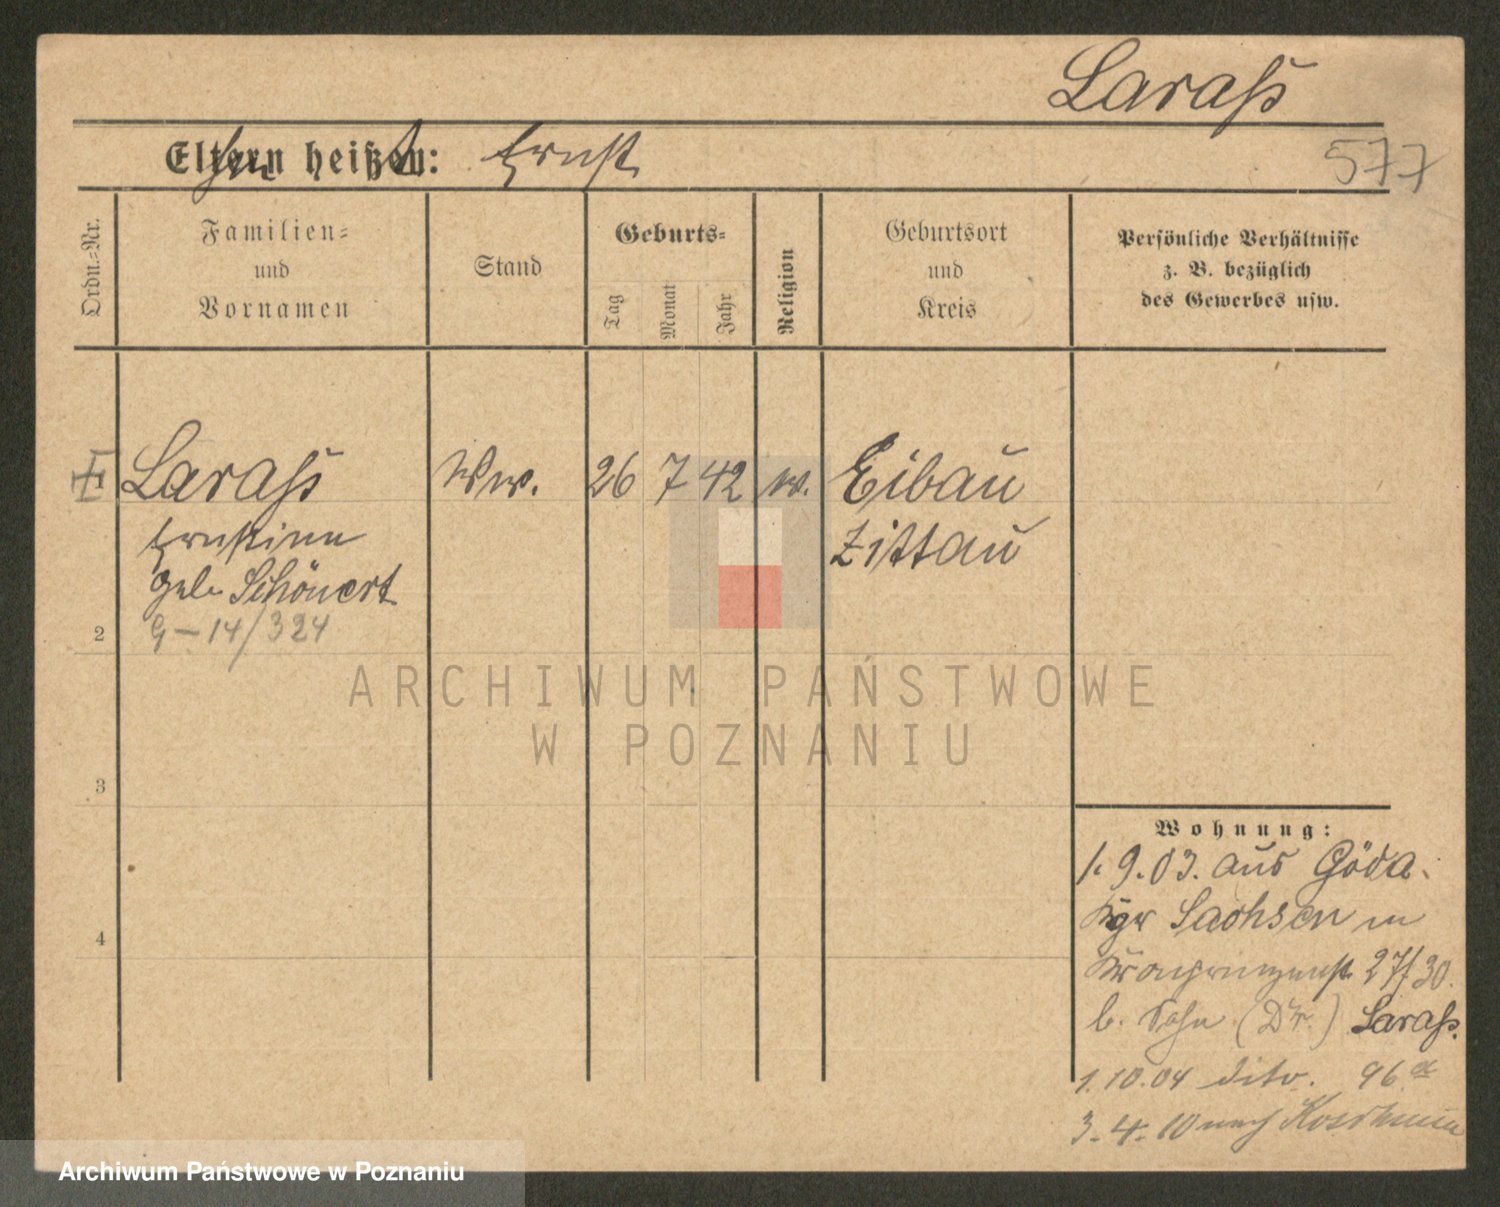 Laraß
Eltern heißen: Ernst
577
Ordn.-Nr.
Familien-
und
Vornamen
Stand
Geburts-
Tag
Monat
Jahr
Religion
Geburtsort
und
Kreis
Persönliche Verhältnisse
z. B. bezüglich
des Gewerbes usw.
Laraß Ww. 26 7 42 Eibau
Ernstine Zittau
geb. Schönert
G-14/324
2
3
4
ARCHIWUM PAŃSTWOWE
W POZNANIU
Wohnung:
1. 9. 03. aus Göda.
Kgr Sachsen in
Kronprinzenst. 27/30.
b. Sohn (Dr.) Laraß.
1. 10. 04 dito. 96
3. 4. 10 nach
Archiwum Państwowe w Poznaniu